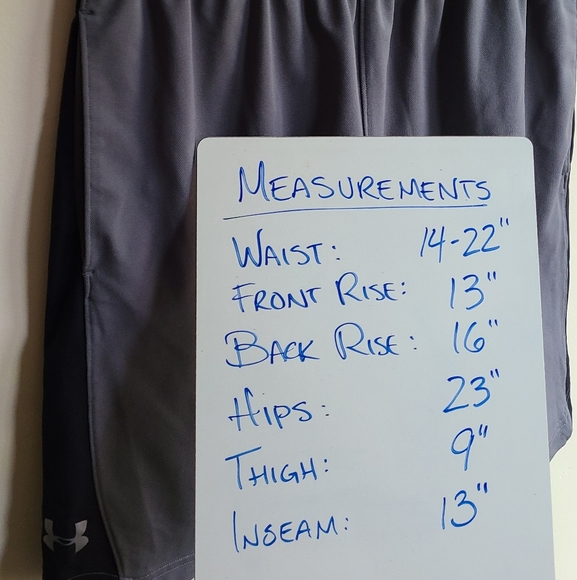 MEASUREMENTS
WAIST: 14-22"
FRONT RISE: 13"
BACK RISE: 16"
HIPS: 23"
THIGH: 9"
INSEAM: 13"